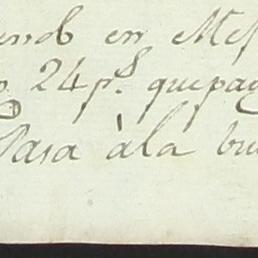 en Mes
24 p.s que pag
Pasa à la bu